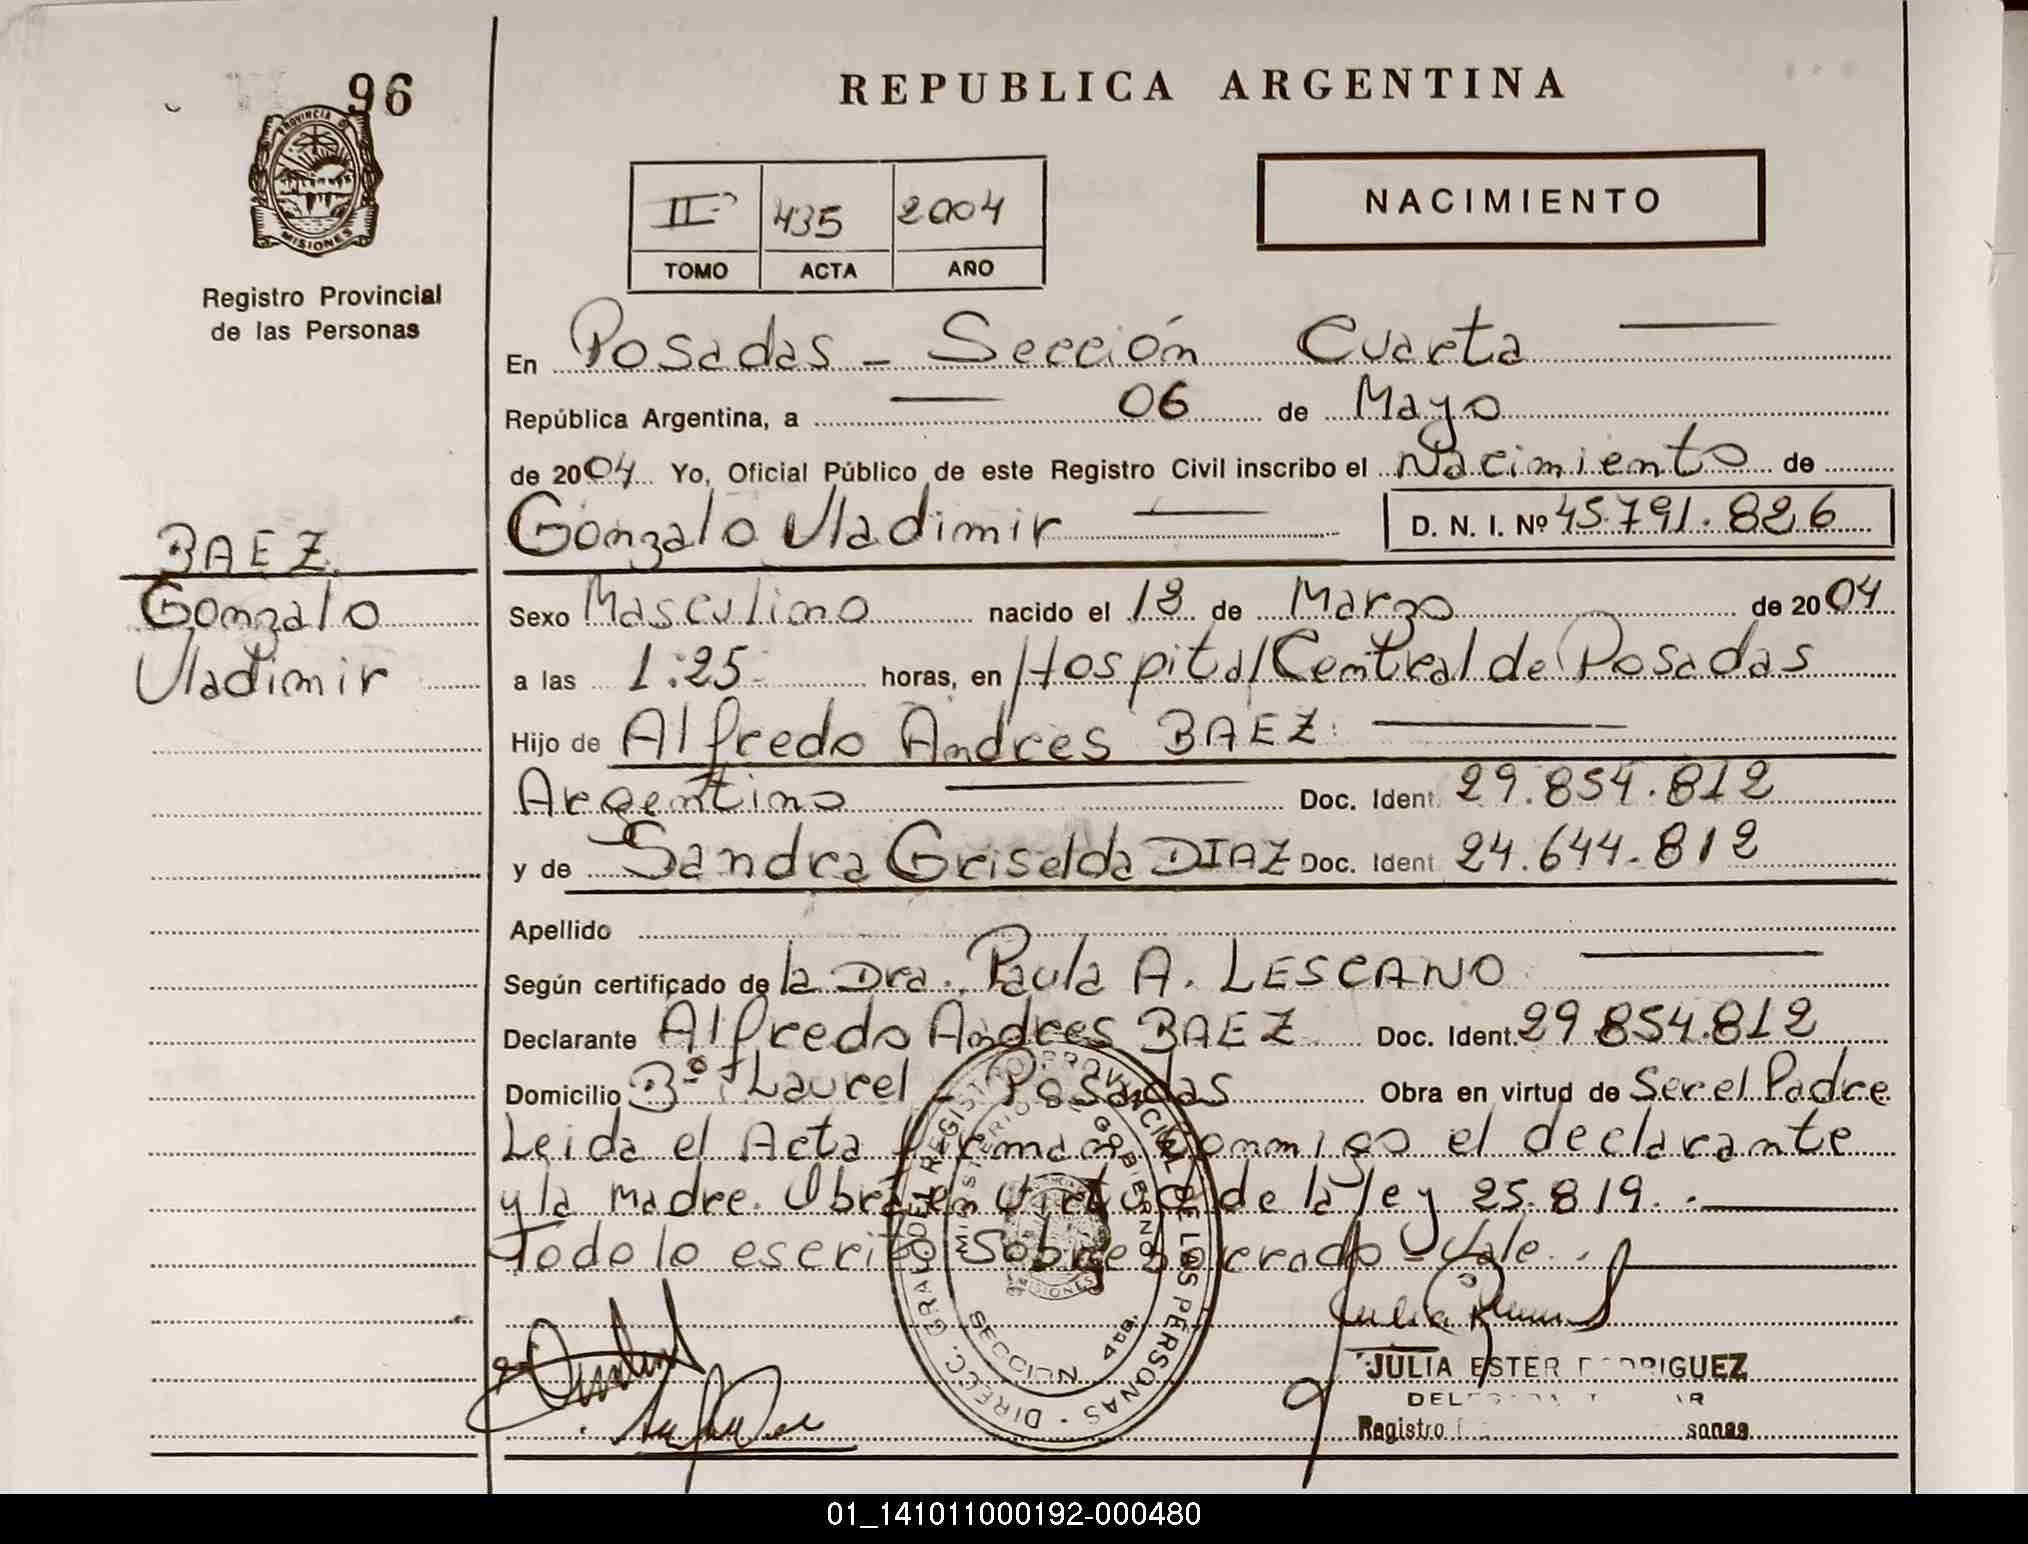 96
PROVINCIA DE
MISIONES
Registro Provincial
de las Personas
BAEZ
Gonzalo
Vladimir
REPUBLICA ARGENTINA
II 435 2004
TOMO ACTA AÑO
NACIMIENTO
En Posadas - Sección Cuarta
República Argentina, a 06 de Mayo
de 2004 Yo, Oficial Público de este Registro Civil inscribo el Nacimiento de
Gonzalo Vladimir D. N. I. Nº 45.791.826
Sexo Masculino nacido el 18 de Marzo de 2004
a las 1:25 horas, en Hospital Central de Posadas
Hijo de Alfredo Andres BAEZ
Argentino Doc. Ident. 29.854.812
y de Sandra Griselda DIAZ Doc. Ident 24.644.812
Apellido
Según certificado de la Dra. Paula A. LESCANO
Declarante Alfredo Andres BAEZ Doc. Ident. 29.854.812
Domicilio Bº Laurel - Posadas Obra en virtud de Ser el Padre
Leida el Acta firman conmigo el declarante
y la madre. Obra en virtud de la ley 25.819.
Todo lo escrito Sobreborrado - Vale.
DIRECC. GRAL. DEL REGISTRO PROVINCIAL DE LAS PERSONAS
MINISTERIO DE GOBIERNO
MISIONES
SECCION 4ta.
JULIA ESTER RODRIGUEZ
Registro
01_141011000192-000480